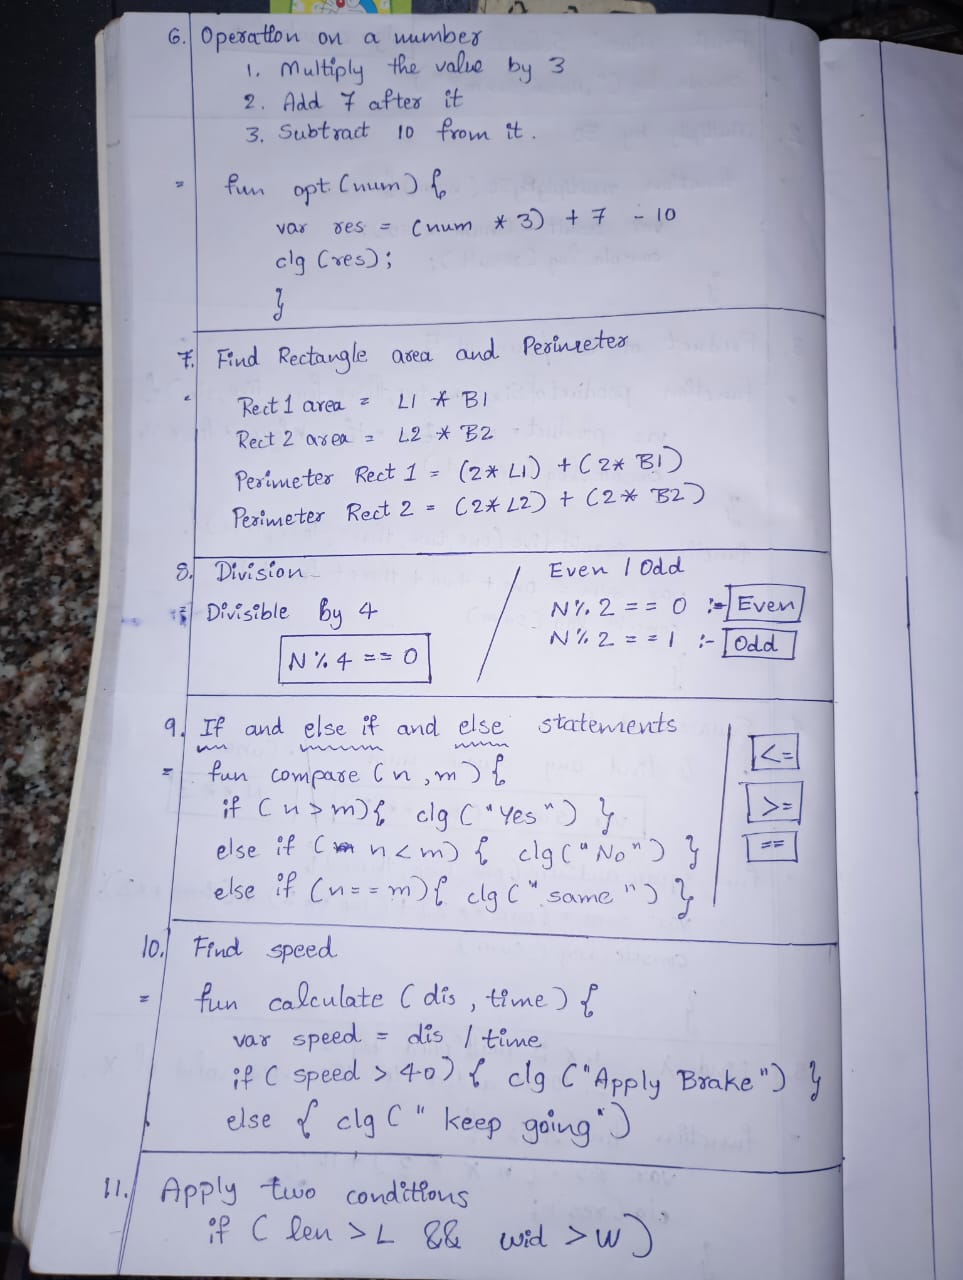 6. Operation on a number
1. Multiply the value by 3
2. Add 7 after it
3. Subtract 10 from it.
= fun opt (num) {
var res = (num * 3) + 7 - 10
clg (res);
}
7. Find Rectangle area and Perimeter
Rect 1 area = L1 * B1
Rect 2 area = L2 * B2
Perimeter Rect 1 = (2* L1) + (2* B1)
Perimeter Rect 2 = (2* L2) + (2* B2)
8. Division
= Divisible by 4
N % 4 == 0
Even / Odd
N % 2 == 0 :- Even
N % 2 == 1 :- Odd
9. If and else if and else statements
= fun compare (n, m) {
if (n > m) { clg ("Yes") }
else if (n < m) { clg ("No") }
else if (n == m) { clg (" same ") }
<=
>=
==
10. Find speed
= fun calculate (dis, time) {
var speed = dis / time
if ( speed > 40) { clg ("Apply Brake") }
else { clg (" keep going")
11. Apply two conditions
if ( len > L && wid > W )